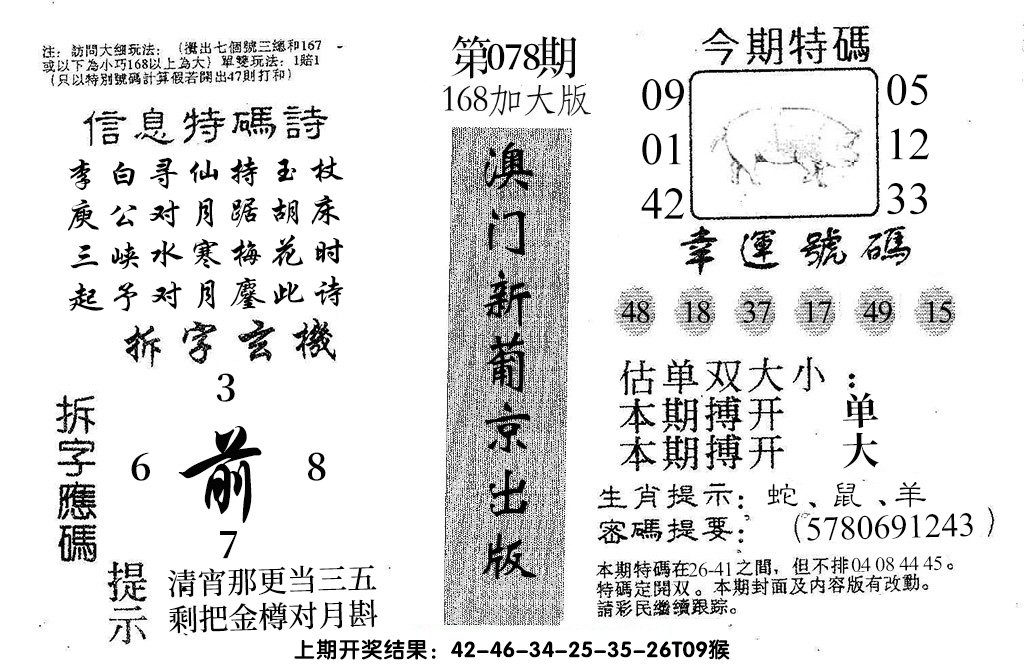 注：訪問大细玩法：（攪出七個號三總和167
或以下為小巧168以上為大）單雙玩法：1賠1
（只以特別號碼計算假若開出47則打和）
信息特碼詩
李白寻仙持玉杖
庾公对月踞胡床
三峡水寒梅花时
起予对月鏖此诗
拆字玄機
拆字應碼
3
6 前 8
7
提示
清宵那更当三五
剩把金樽对月斟
第078期
168加大版
澳门新葡京出版
今期特碼
09 05
01 12
42 33
幸運號碼
48 18 37 17 49 15
估单双大小：
本期搏开 单
本期搏开 大
生肖提示：蛇、鼠、羊
密碼提要：（5780691243）
本期特碼在26-41之間，但不排04 08 44 45。
特碼定開双。本期封面及内容版有改動。
請彩民繼續跟踪。
上期开奖结果：42-46-34-25-35-26T09猴